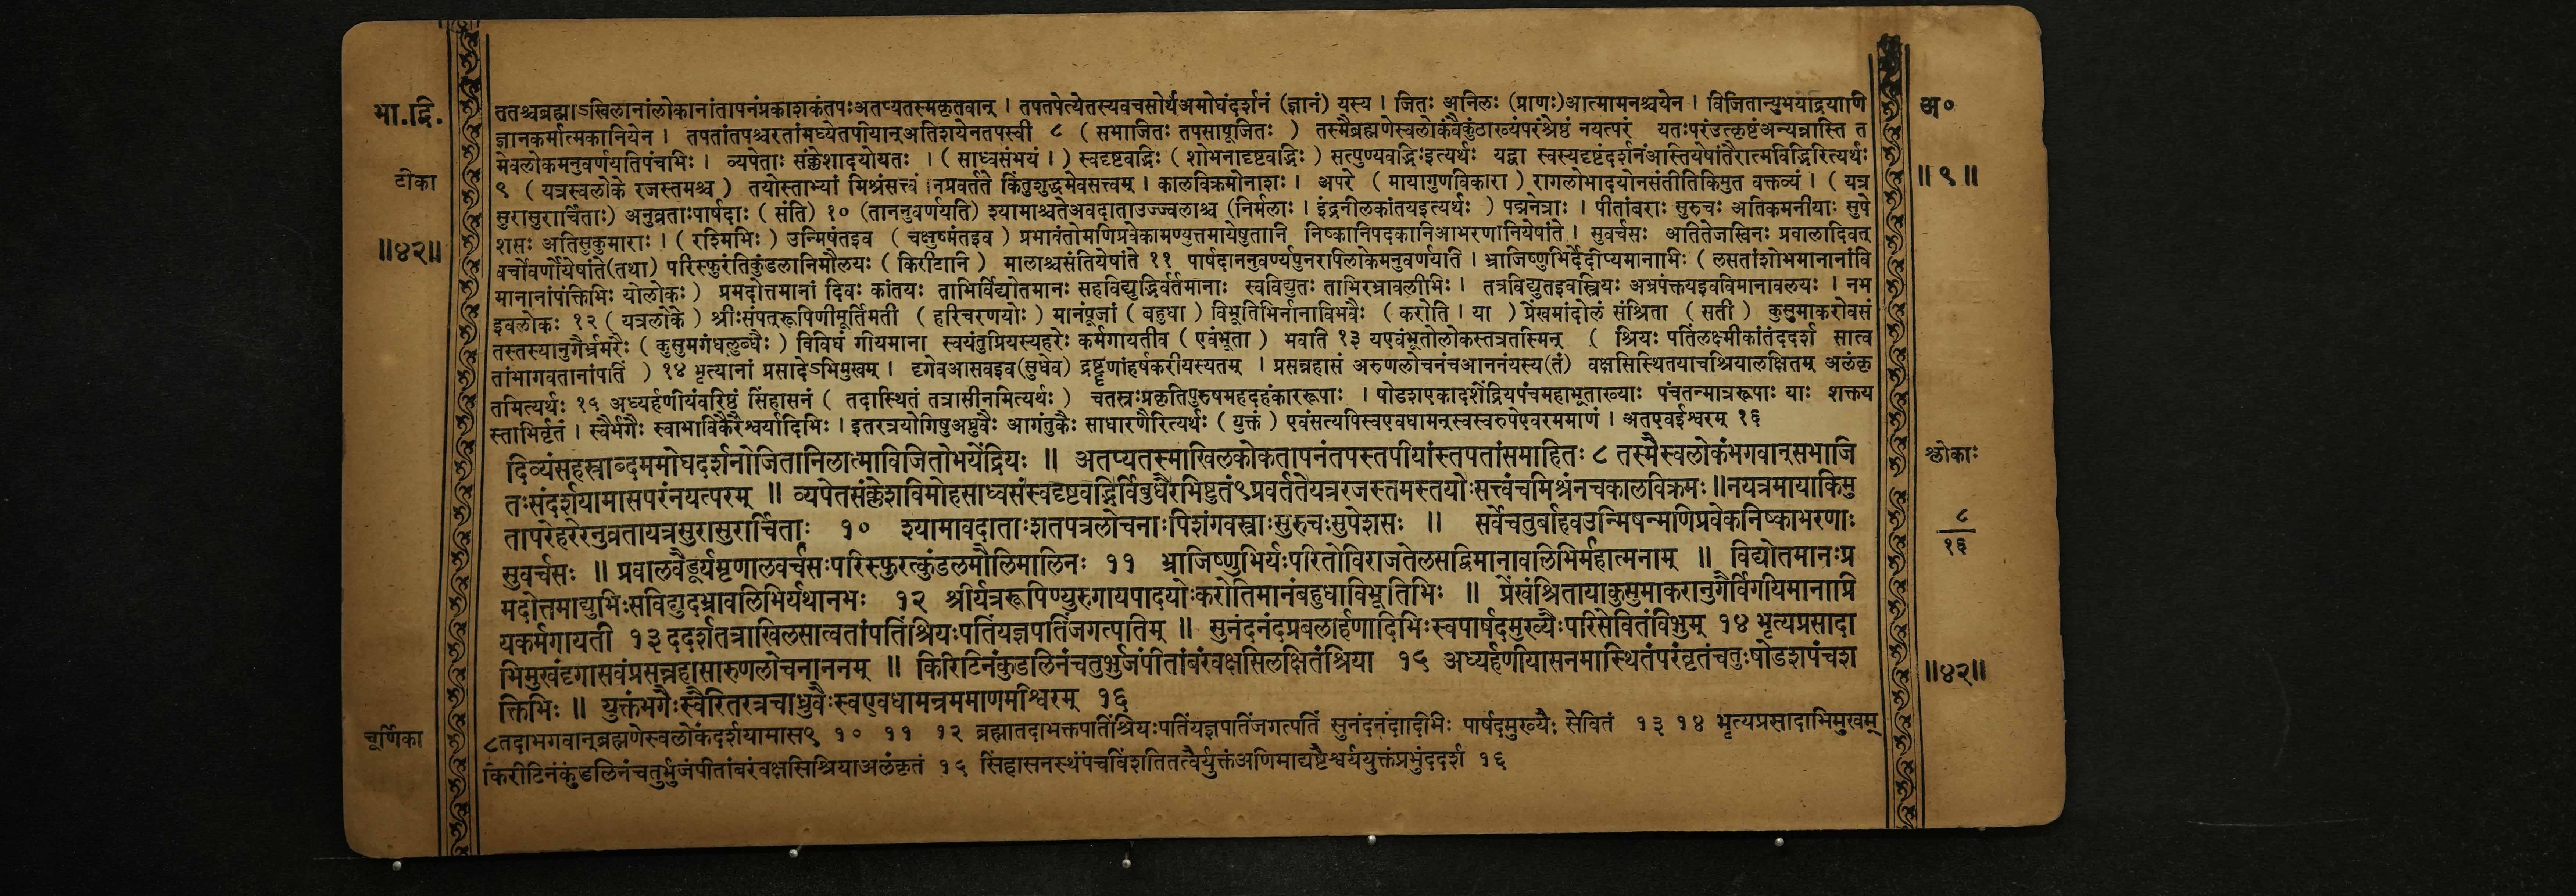 भा.द्वि.
टीका
॥४२॥
चूर्णिका
ततश्चब्रह्माऽखिलानांलोकानांतापनंप्रकाशकंतपःअतप्यतस्मकृतवान् । तपतपेत्येतस्यवचसोर्थेअमोघंदर्शनं (ज्ञानं) यस्य । जितः अनिलः (प्राणः)आत्मामनश्चयेन । विजितान्युभयेंद्रियाणि
ज्ञानकर्मात्मकानियेन । तपतांतपश्चरतांमध्येतपीयान्अतिशयेनतपस्वी ८ ( सभाजितः तपसापूजितः ) तस्मैब्रह्मणेस्वलोकंवैकुंठाख्यंपरंश्रेष्ठं नयत्परं यतःपरंउत्कृष्टंअन्यन्नास्ति त
मेवलोकमनुवर्णयतिपंचभिः । व्यपेताः संक्लेशादयोयतः । ( साध्वसंभयं । ) स्वदृष्टवद्भिः ( शोभनादृष्टवद्भिः ) सत्पुण्यवद्भिःइत्यर्थः यद्वा स्वस्यदृष्टंदर्शनंअस्तियेषांतैरात्मविद्भिरित्यर्थः
९ ( यत्रस्वलोके रजस्तमश्च ) तयोस्ताभ्यां मिश्रंसत्त्वं ।नप्रवर्तते किंतुशुद्धमेवसत्त्वम् । कालविक्रमोनाशः । अपरे ( मायागुणविकारा ) रागलोभादयोनसंतीतिकिमुत वक्तव्यं । ( यत्र
सुरासुरार्चिताः) अनुव्रताःपार्षदाः ( संति) १० (ताननुवर्णयति) श्यामाश्चतेअवदाताउज्ज्वलाश्च (निर्मलाः । इंद्रनीलकांतयइत्यर्थः ) पद्मनेत्राः । पीतांबराः सुरुचः अतिकमनीयाः सुपे
शसः अतिसुकुमाराः । ( रश्मिभिः ) उन्मिषंतइव ( चक्षुष्मंतइव ) प्रभावंतोमणिप्रवेकामण्युत्तमायेषुतानि निष्कानिपदकानिआभरणानियेषांते । सुवर्चसः अतितेजस्विनः प्रवालादिवत्
वर्चोवर्णोयेषांते(तथा) परिस्फुरंतिकुंडलानिमौलयः ( किरीटानि ) मालाश्चसंतियेषांते ११ पार्षदाननुवर्ण्यपुनरपिलोकमनुवर्णयति । भ्राजिष्णुभिर्देदीप्यमानाभिः ( लसतांशोभमानानांवि
मानानांपंक्तिभिः योलोकः ) प्रमदोत्तमानां दिवः कांतयः ताभिर्विद्योतमानः सहविद्युद्भिर्वर्तमानाः स्वविद्युतः ताभिरभ्रावलीभिः । तत्रविद्युतइवस्त्रियः अभ्रपंक्तयइवविमानावलयः । नभ
इवलोकः १२ ( यत्रलोके ) श्रीःसंपत्रूपिणीमूर्तिमती ( हरिचरणयोः ) मानंपूजां ( बहुधा ) विभूतिभिर्नानाविभवैः ( करोति । या ) प्रेंखमांदोलं संश्रिता ( सती ) कुसुमाकरोवसं
तस्तस्यानुगैर्भ्रमरैः ( कुसुमगंधलुब्धैः ) विविधं गीयमाना स्वयंतुप्रियस्यहरेः कर्मगायतीव ( एवंभूता ) भवति १३ यएवंभूतोलोकस्तत्रतस्मिन् ( श्रियः पतिंलक्ष्मीकांतंददर्श सात्व
तांभागवतानांपतिं ) १४ भृत्यानां प्रसादेऽभिमुखम् । दृगेवआसवइव(सुधेव) द्रष्टॄणांहर्षकरीयस्यतम् । प्रसन्नहासं अरुणलोचनंचआननंयस्य(तं) वक्षसिस्थितयाचश्रियालक्षितम् अलंकृ
तमित्यर्थः १५ अध्यर्हणीयंवरिष्ठं सिंहासनं ( तदास्थितं तत्रासीनमित्यर्थः ) चतस्रःप्रकृतिपुरुषमहदहंकाररूपाः । षोडशएकादशेंद्रियपंचमहाभूताख्याः पंचतन्मात्ररूपाः याः शक्तय
स्ताभिर्वृतं । स्वैर्भगैः स्वाभाविकैरैश्वर्यादिभिः । इतरत्रयोगिषुअध्रुवैः आगंतुकैः साधारणैरित्यर्थः ( युक्तं ) एवंसत्यपिस्वएवधामन्स्वस्वरूपेएवरममाणं । अतएवईश्वरम् १६
दिव्यंसहस्राब्दममोघदर्शनोजितानिलात्माविजितोभयेंद्रियः ॥ अतप्यतस्माखिलकोकतापनंतपस्तपीयांस्तपतांसमाहितः ८ तस्मैस्वलोकंभगवान्सभाजि
तःसंदर्शयामासपरंनयत्परम् ॥ व्यपेतसंक्लेशविमोहसाध्वसंस्वदृष्टवद्भिर्विबुधैरभिष्टुतं९प्रवर्ततेयत्ररजस्तमस्तयोःसत्त्वंचमिश्रंनचकालविक्रमः ॥नयत्रमायाकिमु
तापरेहरेरनुव्रतायत्रसुरासुरार्चिताः १० श्यामावदाताःशतपत्रलोचनाःपिशंगवस्त्राःसुरुचःसुपेशसः ॥ सर्वेचतुर्बाहवउन्मिषन्मणिप्रवेकनिष्काभरणाः
सुवर्चसः ॥ प्रवालवैडूर्यमृणालवर्चसःपरिस्फुरत्कुंडलमौलिमालिनः ११ भ्राजिष्णुभिर्यःपरितोविराजतेलसद्विमानावलिभिर्महात्मनाम् ॥ विद्योतमानःप्र
मदोत्तमाद्युभिःसविद्युदभ्रावलिभिर्यथानभः १२ श्रीर्यत्ररूपिण्युरुगायपादयोःकरोतिमानंबहुधाविभूतिभिः ॥ प्रेंखंश्रितायाकुसुमाकरानुगैर्विगीयमानाप्रि
यकर्मगायती १३ ददर्शतत्राखिलसात्वतांपतिंश्रियःपतिंयज्ञपतिंजगत्पतिम् ॥ सुनंदनंदप्रबलार्हणादिभिःस्वपार्षदमुख्यैःपरिसेवितंविभुम् १४ भृत्यप्रसादा
भिमुखंदृगासवंप्रसन्नहासारुणलोचनाननम् ॥ किरीटिनंकुंडलिनंचतुर्भुजंपीतांबरंवक्षसिलक्षितंश्रिया १५ अध्यर्हणीयासनमास्थितंपरंवृतंचतुःषोडशपंचश
क्तिभिः ॥ युक्तंभगैःस्वैरितरत्रचाध्रुवैःस्वएवधामन्रममाणमीश्वरम् १६
८तदाभगवान्ब्रह्मणेस्वलोकंदर्शयामास९ १० ११ १२ ब्रह्मातदाभक्तपतिंश्रियःपतिंयज्ञपतिंजगत्पतिं सुनंदनंदादीभिः पार्षदमुख्यैः सेवितं १३ १४ भृत्यप्रसादाभिमुखम्
किरीटिनंकुंडलिनंचतुर्भुजंपीतांबरंवक्षसिश्रियाअलंकृतं १५ सिंहासनस्थंपंचविंशतितत्वैर्युक्तंअणिमाद्यष्टैश्वर्ययुक्तंप्रभुंददर्श १६
अ०
॥ ९ ॥
श्लोकाः
८
१६
॥४२॥